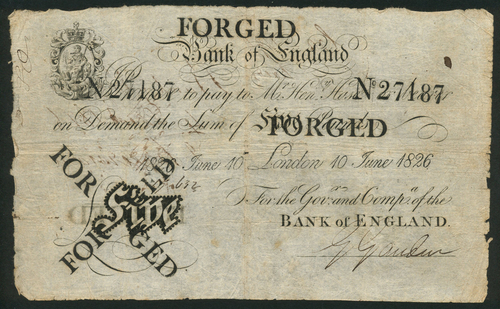 FORGED
Bank of England
No 27187 to pay to Mr. Hen. Hase No 27187
on Demand the Sum of Five FORGED
1826 June 10 London 10 June 1826
FORGED
For the Gov. and Comp.a of the
Five
BANK of ENGLAND.
FORGED